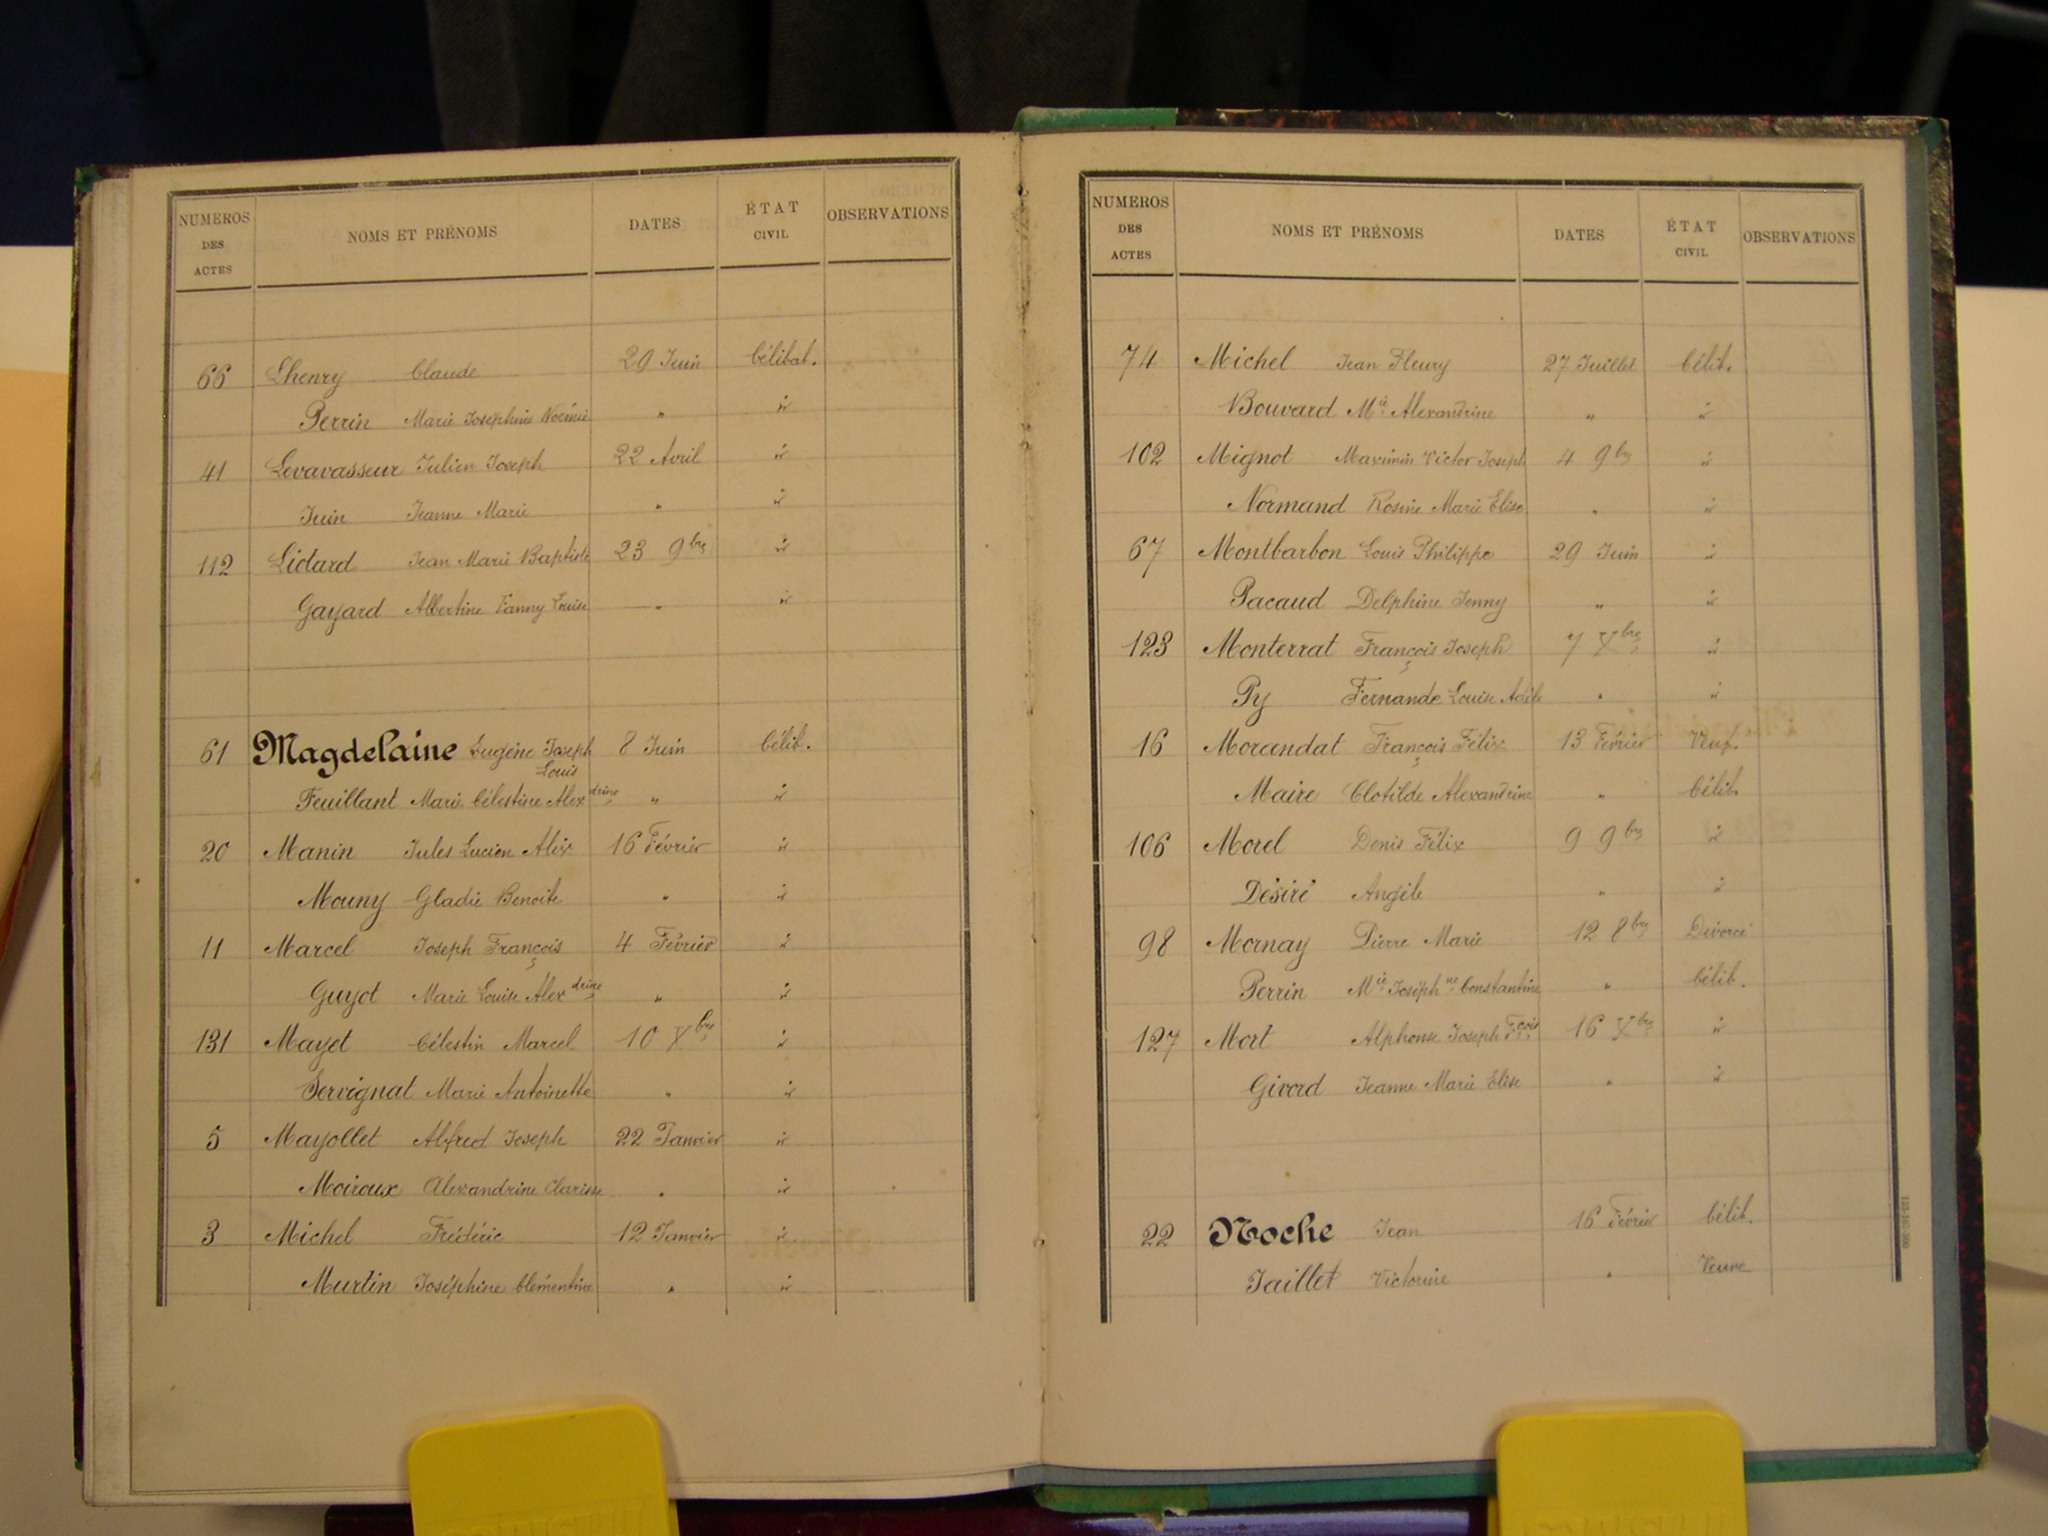 NUMEROS DES ACTES NOMS ET PRÉNOMS DATES ÉTAT CIVIL OBSERVATIONS
66 Lhenry Claude 29 Juin Célibat.
Perrin Marie Joséphine Noémie " id
41 Levavasseur Julien Joseph 22 Avril id
Juin Jeanne Marie " id
112 Liotard Jean Marie Baptiste 23 9bre id
Gayard Albertine Fanny Louise " id
61 Magdelaine Eugène Joseph 8 Juin Célib.
Louis
Feuillant Marie Célestine Alexdrine " id
20 Manin Jules Lucien Alix 16 Février id
Mouny Gladie Benoite " id
11 Marcel Joseph François 4 Février id
Guyot Marie Louise Alexdrine " id
131 Mayet Célestin Marcel 10 Xbre id
Servignat Marie Antoinette " id
5 Mayollet Alfred Joseph 22 Janvier id
Moiroux Alexandrine Clarisse " id
3 Michel Frédéric 12 Janvier id
Murtin Joséphine Clémentine " id
NUMEROS DES ACTES NOMS ET PRÉNOMS DATES ÉTAT CIVIL OBSERVATIONS
74 Michel Jean Fleury 27 Juillet Célib.
Bouvard Mie Alexandrine " id
102 Mignot Maximin Victor Joseph 4 9bre id
Normand Rosine Marie Elise " id
67 Montbarbon Louis Philippe 29 Juin id
Pacaud Delphine Jenny " id
123 Monterrat François Joseph 7 Xbre id
Py Fernande Louise Adèle " id
16 Morandat François Félix 13 Février Veuf.
Maire Clotilde Alexandrine " Célib.
106 Morel Denis Félix 9 9bre id
Désiré Angèle " id
98 Mornay Pierre Marie 12 8bre Divorcé
Perrin Mie Josephne Constantine " Célib.
127 Mort Alphonse Joseph Fçois 16 Xbre id
Givord Jeanne Marie Elise " id
22 Noche Jean 16 Février Célib.
Jaillet Victorine " Veuve